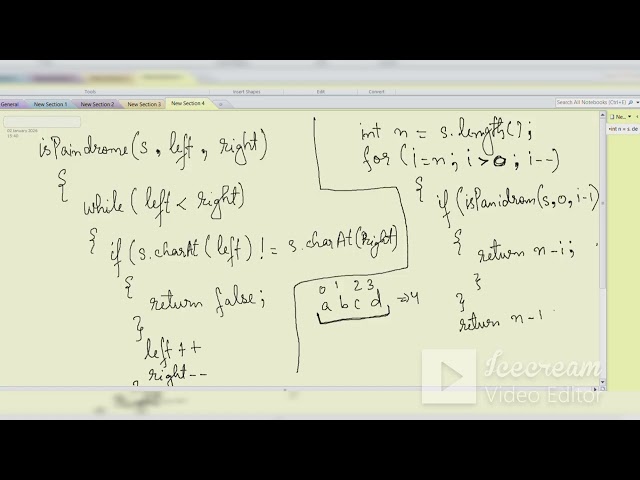 Tools
Insert Shapes
Edit
Convert
General
New Section 1
New Section 2
New Section 3
New Section 4
Search All Notebooks (Ctrl+E)
02 January 2026
isPaindrome(s, left, right)
{
while(left < right)
{ if (s.charAt(left) != s.charAt(right)
{
return false;
}
left++
right--
int n = s.length();
for (i=n; i>0; i--)
{ if (isPanidrom(s,0,i-1)
{
return n-i;
}
}
return n-1
0 1 2 3
a b c d => 4
Icecream
Video Editor